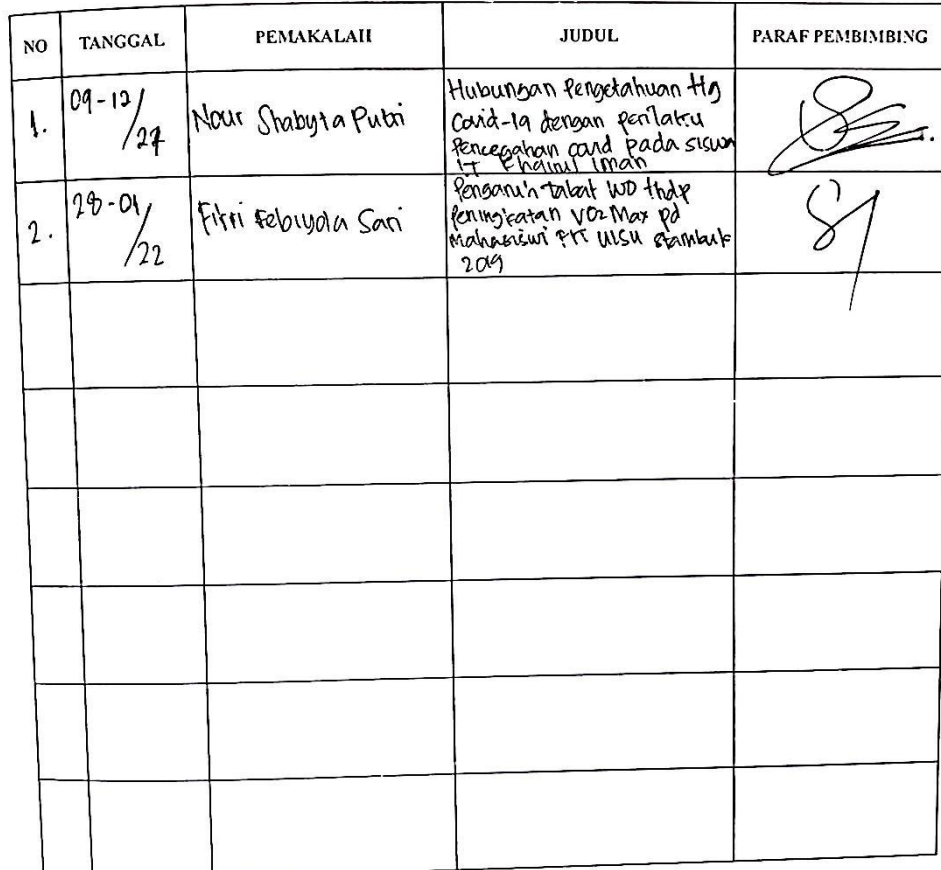 NO TANGGAL PEMAKALAH JUDUL PARAF PEMBIMBING
1. 09-12/21 Nour Shabyra Putri Hubungan Pengetahuan ttg
Covid-19 dengan perilaku
Pencegahan covid pada siswa
IT Khairul Iman
2. 28-01/22 Fitri Febiyola Sari Pengaruh tabat WO thdp
Peningkatan VO2 Max pd
Mahasiswi FK UISU stambuk
2019